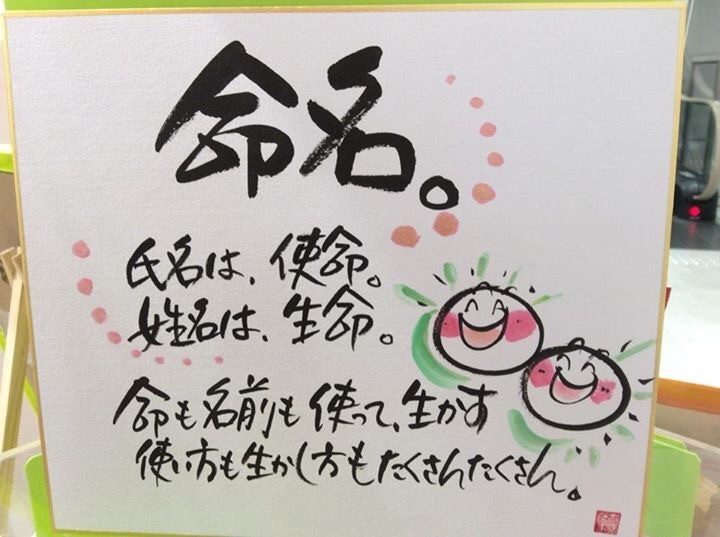 命名。
氏名は、使命。
姓名は、生命。
命も名前も使って、生かす
使い方も生かし方もたくさんたくさん。